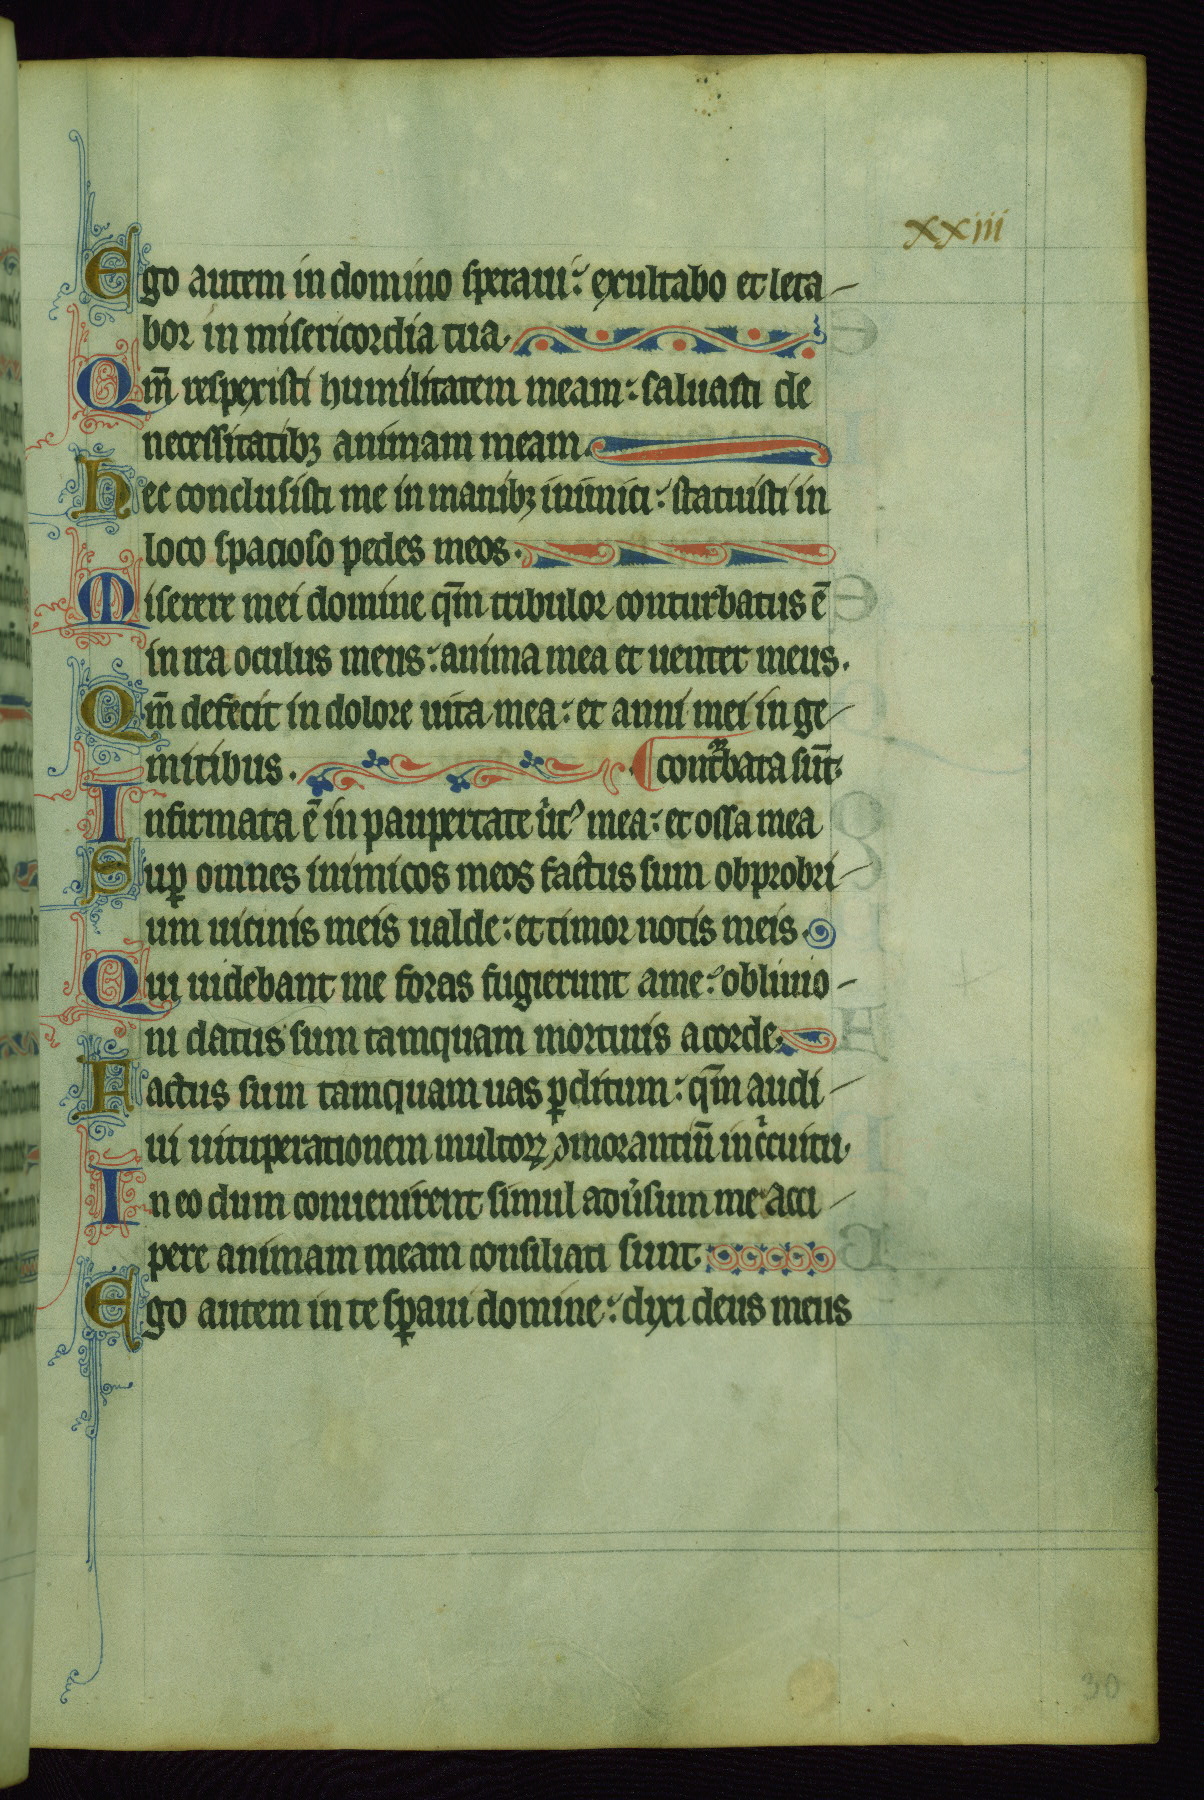 xxiii
Ego autem in domino speraui: exultabo et leta-
bor in misericordia tua.
Qm̄ respexisti humilitatem meam: saluasti de
necessitatibꝫ animam meam.
Nec conclusisti me in manibꝫ inimici: statuisti in
loco spacioso pedes meos.
Miserere mei domine qm̄ tribulor conturbatus ē
in ira oculus meus: anima mea et uenter meus.
Qm̄ defecit in dolore uita mea: et anni mei in ge-
mitibus. conťbata sūt.
Infirmata ē in paupertate uͥt᷒ mea: et ossa mea
Suꝑ omnes inimicos meos factus sum obprobri-
um uicinis meis ualde: et timor notis meis.
Qui uidebant me foras fugierunt a me: obliuio-
ni datus sum tamquam mortuus a corde.
Factus sum tamquam uas ꝑditum: qm̄ audi-
ui uituperationem multoꝝ ↄmorantiū in cͥcuitu.
In eo dum conuenirent simul aduͥsum me acci-
pere animam meam consiliati sunt.
Ego autem in te sꝑaui domine: dixi deus meus
30